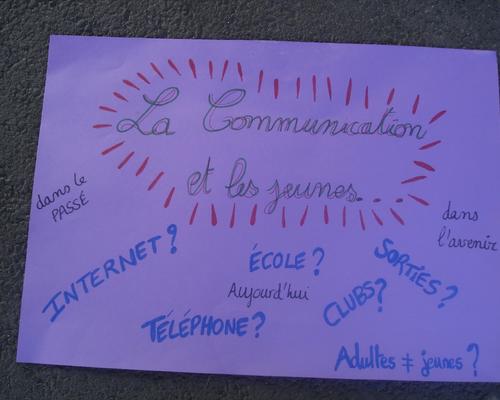 La Communication
et les jeunes...
dans le
PASSÉ
dans
l'avenir
INTERNET?
ÉCOLE?
SORTIES?
Aujourd'hui
CLUBS?
TÉLÉPHONE?
Adultes ≠ jeunes?